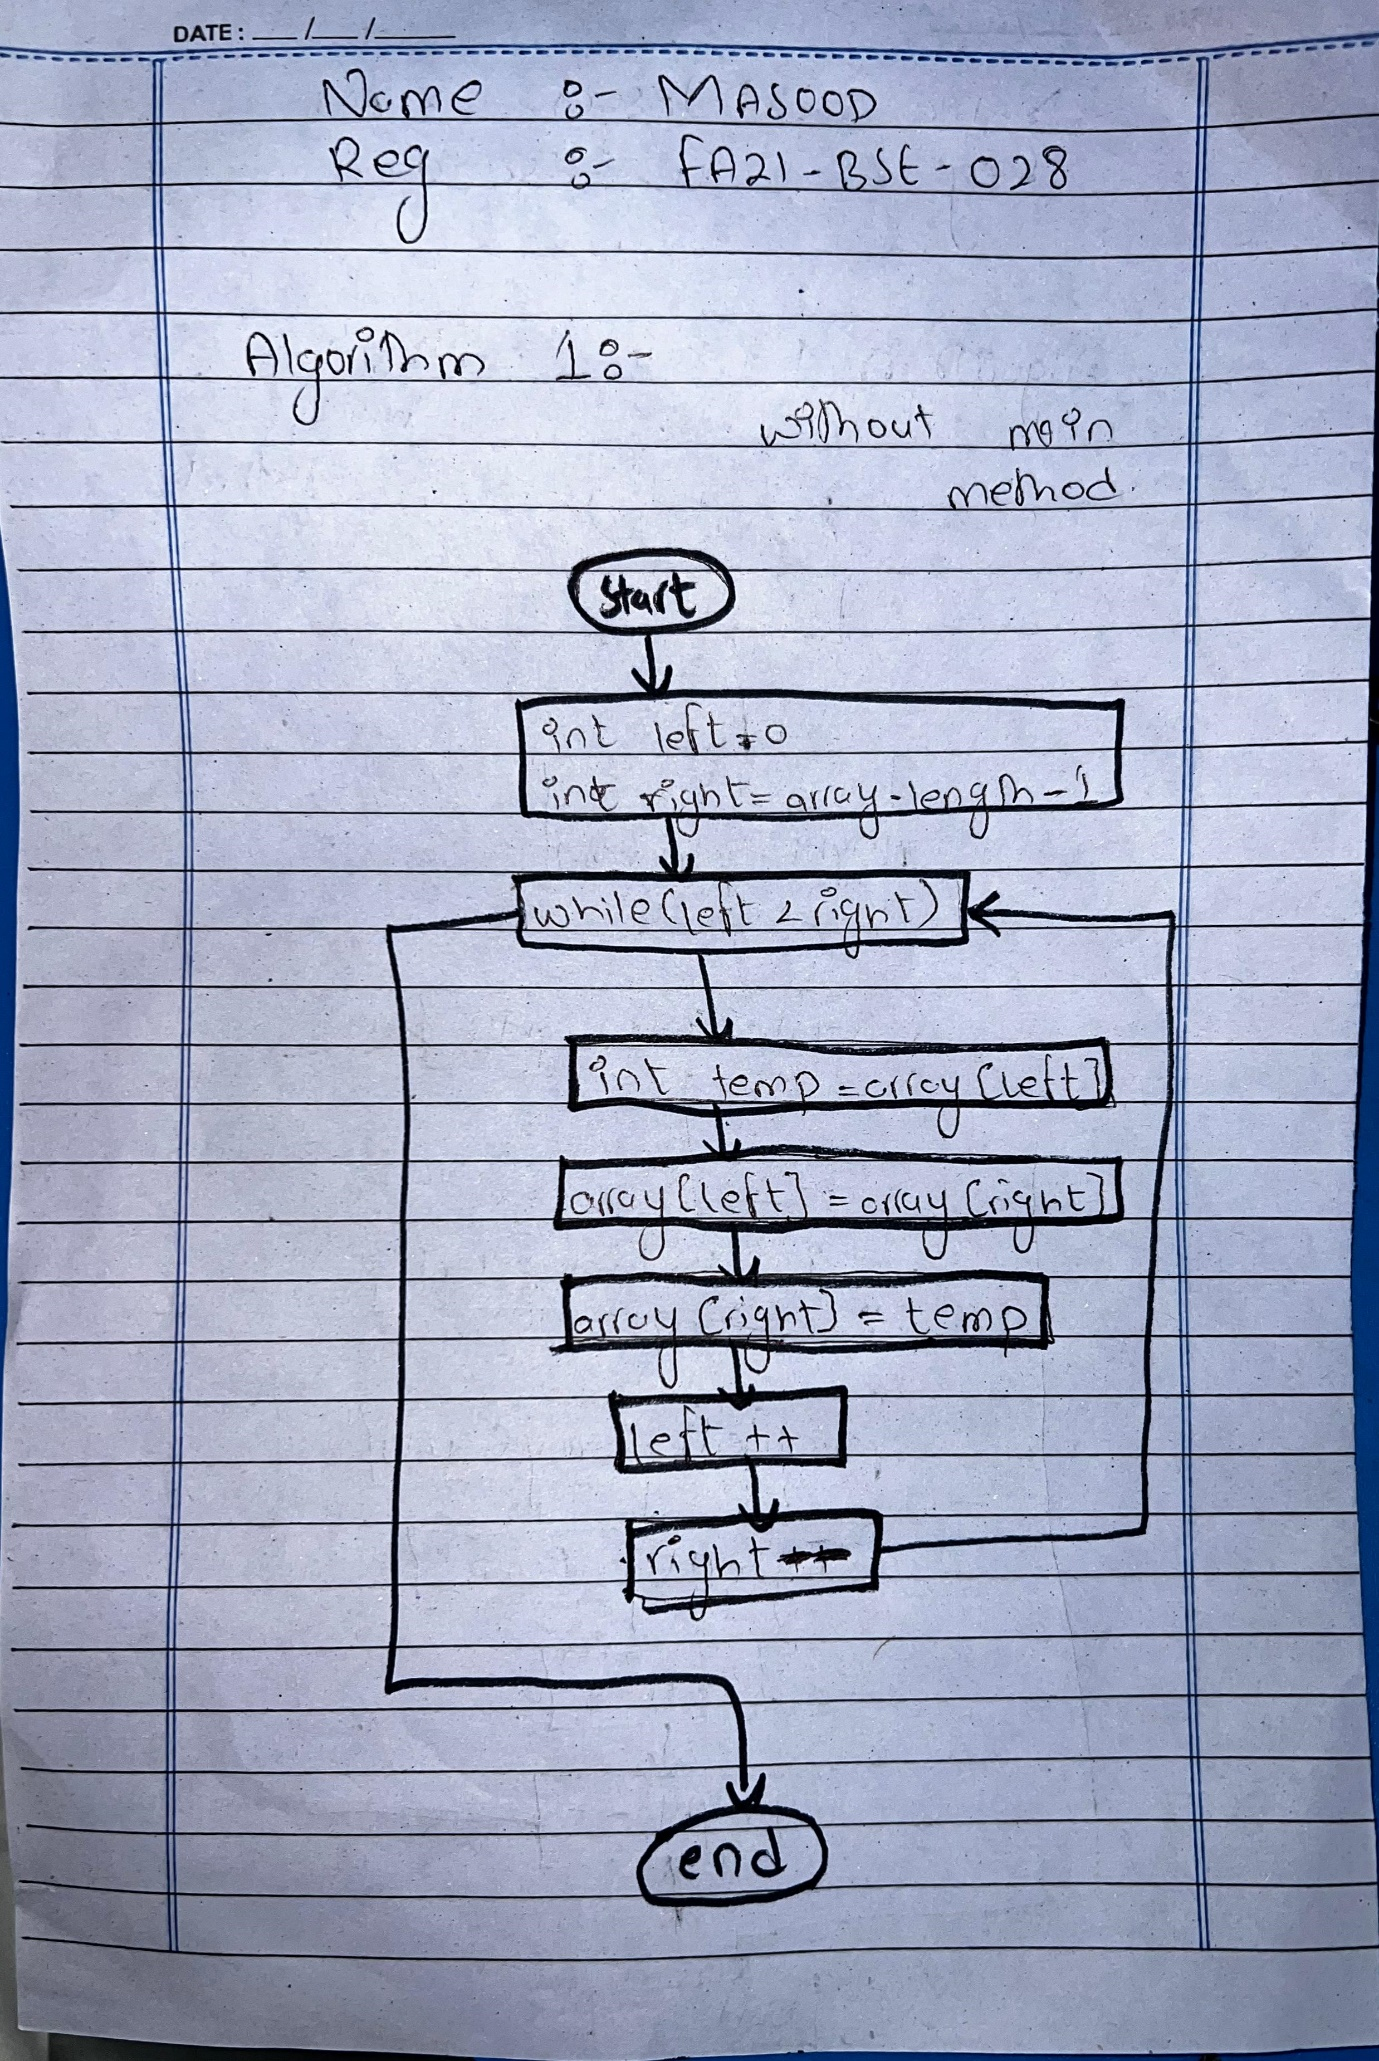 DATE: __/__/____
Name :- MASOOD
Reg :- FA21-BSE-028
Algorithm 1:-
without main
method.
start
int left=0
int right=array.length-1
while(left<right)
int temp=array[left]
array[left]=array[right]
array[right]=temp
left++
right
end